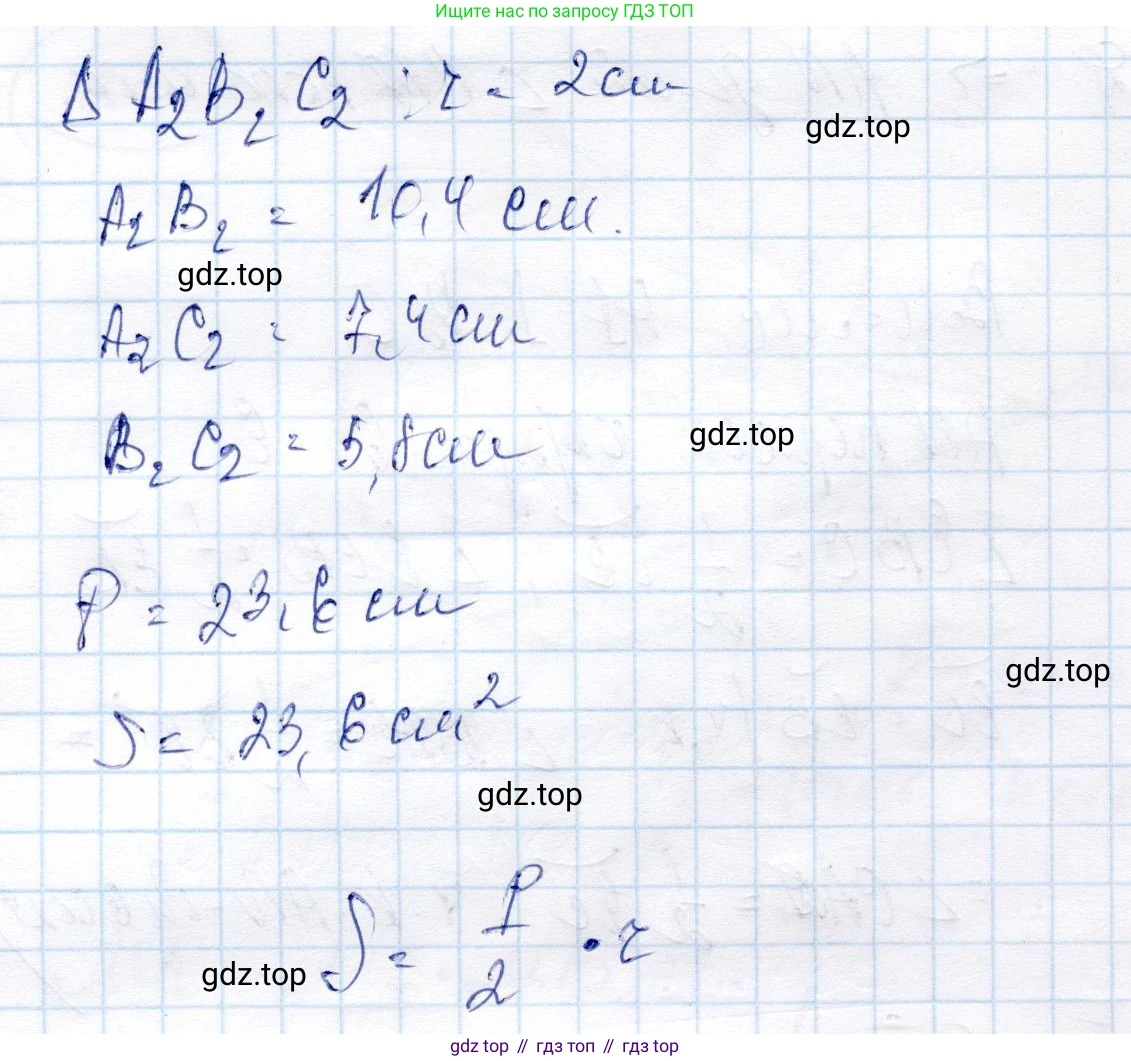 Ищите нас по запросу ГДЗ ТОП
Δ A₂B₂C₂ : r = 2 см
gdz.top
A₂B₂ = 10,4 см.
gdz.top
A₂C₂ = 7,4 см
B₂C₂ = 5,8 см
gdz.top
P = 23,6 см
gdz.top
S = 23,6 см²
gdz.top
S = P/2 · r
gdz.top
gdz top // гдз топ // gdz top